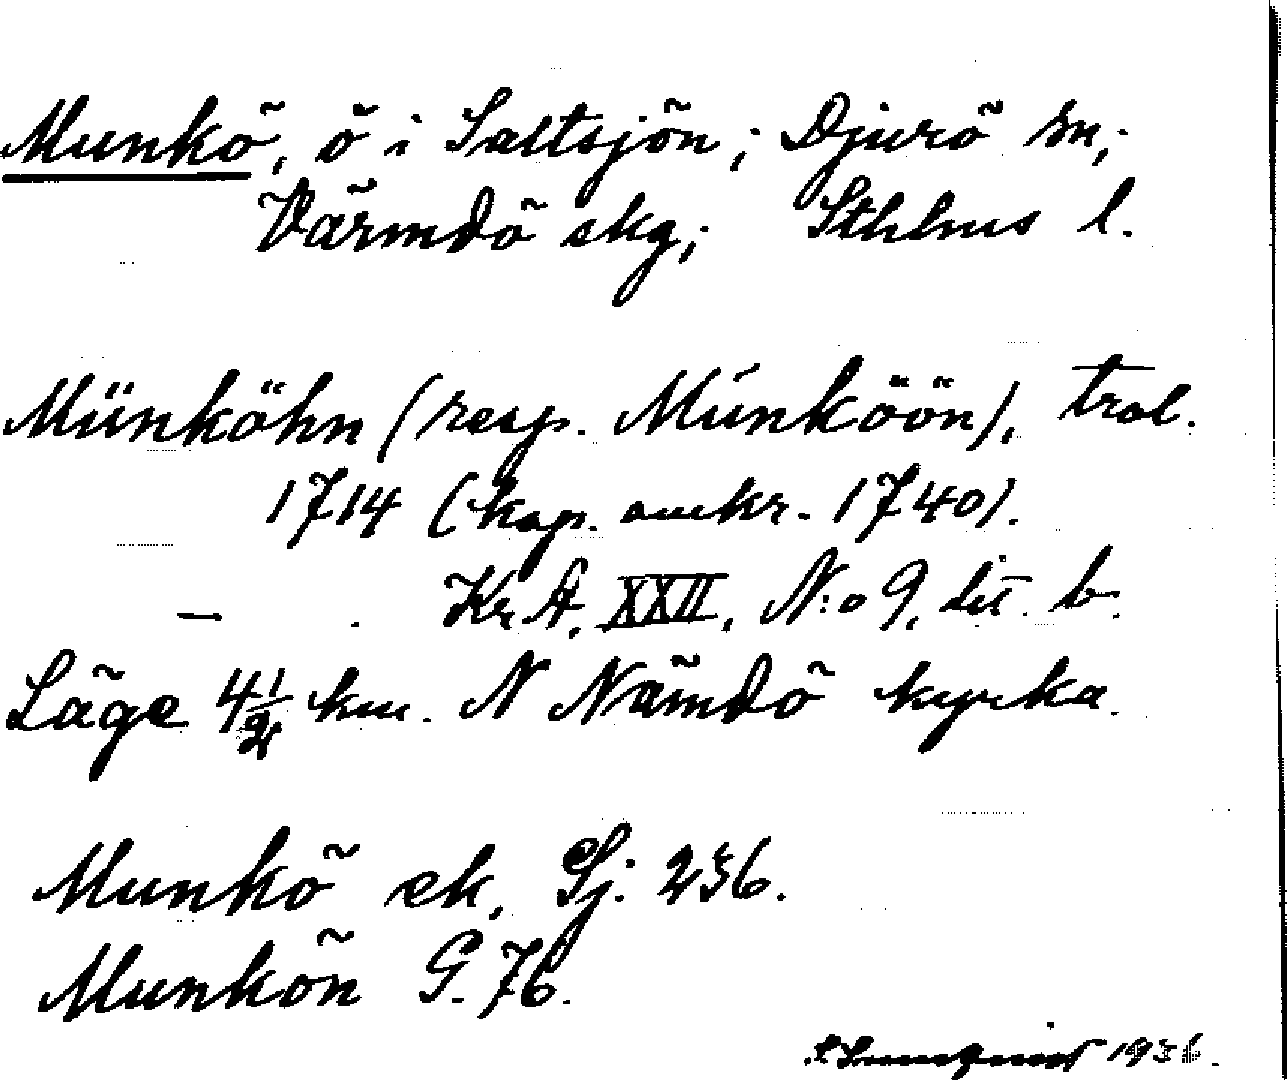 Munkö, ö i Saltsjön; Djurö sn;
Värmdö skg; Sthlms l.
Münköhn (resp. Munköön), trol.
1714 (kop. omkr. 1740).
— Kr.A. XXII, N:o 9, lit. b.
Läge 4 1/2 km. N Nämdö kyrka.
Munkö ek. Sj. 236.
Munkön G. 76.
1936.